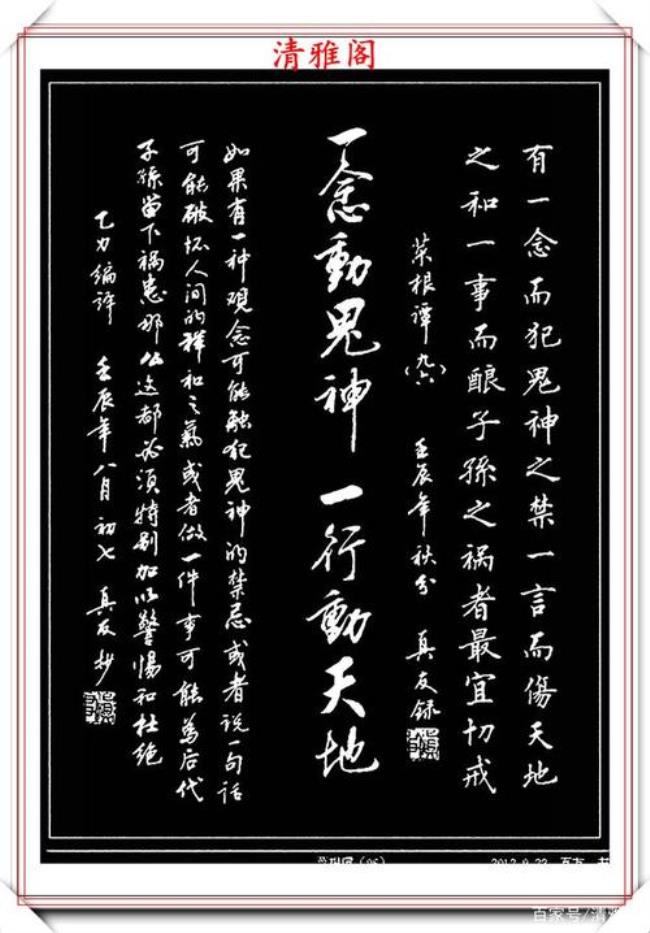 清雅阁
有一念而犯鬼神之禁一言而傷天地
之和一事而酿子孫之祸者最宜切戒
菜根谭(九六) 壬辰年秋分 真友録
一念動鬼神一行動天地
如果有一种观念可能触犯鬼神的禁忌或者说一句话
可能破坏人间的祥和之氣或者做一件事可能為后代
子孫留下祸患那么这都必须特别加以警惕和杜绝
乙力编译 壬辰年八月初七 真友抄
2012.9.22
百家号/清雅